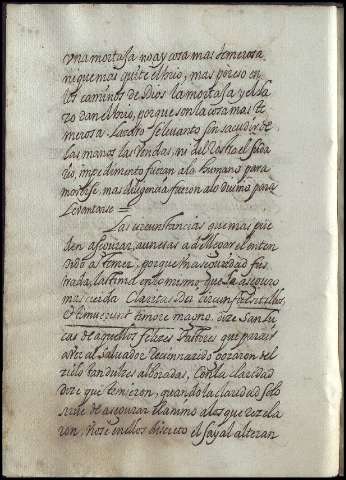 vna mortaja no ay cosa mas temerosa
ni que mas quite el brio, mas por eso en
los caminos de Dios la mortaja y el la
zo dan el brio, porque son la cosa mas te
merosa. Lazaro se leuanto sin sacudir de
las manos las vendas, ni del rostro el suda
rio, impedimento fueran a lo humano para
mouerse, mas diligencia fueron a lo diuino para
leuantarse =
Las circunstancias que mas pue
den asegurar, aun esas a de llegar el enten
dido a temer, porque una seguridad frus
trada, lastima en lo mismo que la aseguro
mas cuerda Claritas Dei circunfulsit illos,
et timuerunt timore magno. dize San Lu
cas de aquellos felizes Pastores que para is
al Salvador recien nacido gozaron del
cielo tan dulzes alboradas, con la claridad
dize que temieron, quando la claridad solo
sirue de asegurar el animo a los que rezela
ron, no se en ellos discreto el sayal alteran